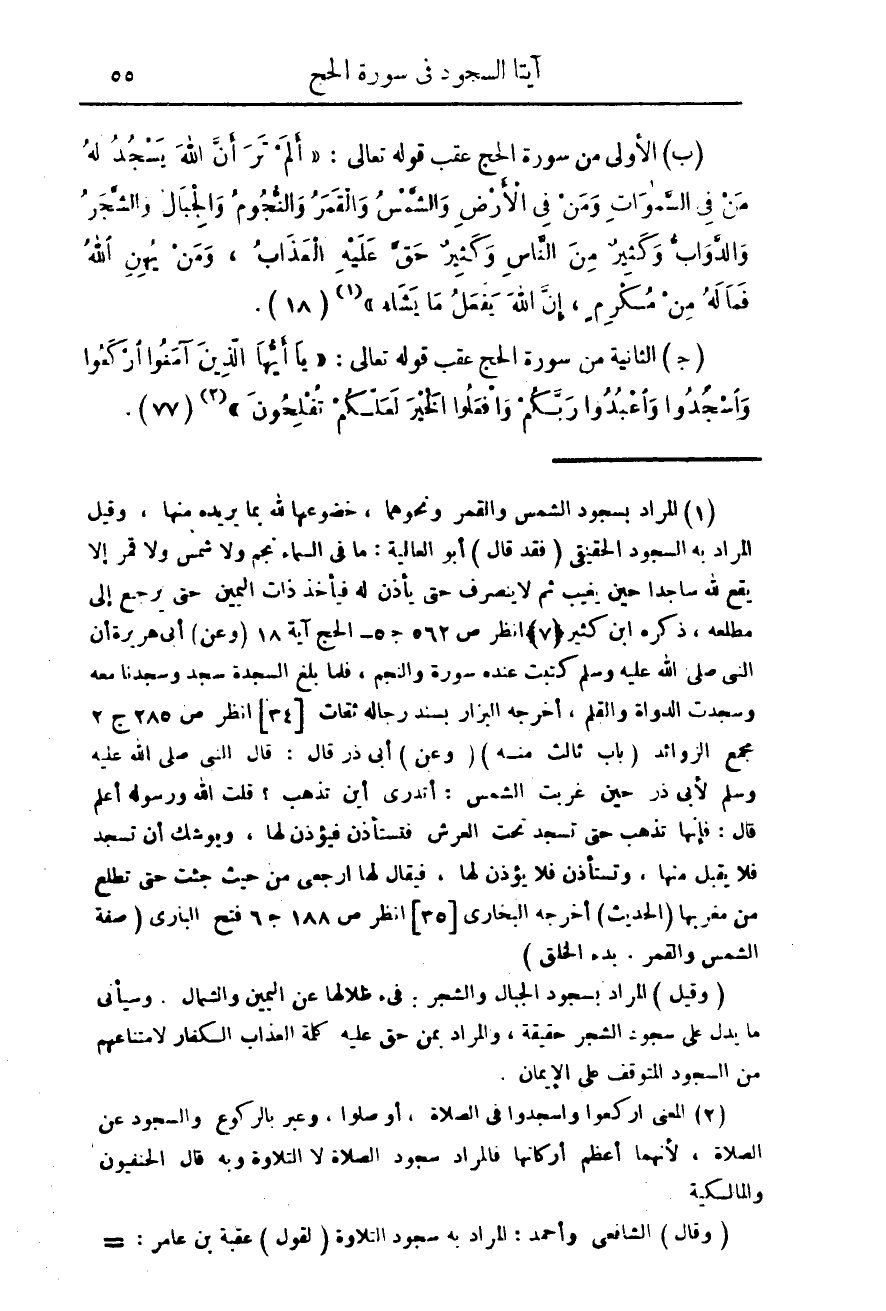 آيتا السجود فى سورة الحج ٥٥
(ب) الأولى من سورة الحج عقب قوله تعالى : « أَلَمْ تَرَ أَنَّ اللهَ يَسْجُدُ لهُ
مَنْ فِى السَّمٰوَاتِ وَمَنْ فِى الْأَرْضِ وَالشَّمْسُ وَالْقَمَرُ وَالنُّجُومُ وَالْجِبَالُ وَالشَّجَرُ
وَالدَّوَابُّ وَكَثِيرٌ مِنَ النَّاسِ وَكَثِيرٌ حَقَّ عَلَيْهِ الْعَذَابُ ، وَمَنْ يُهِنِ اللهُ
فَمَالَهُ مِنْ مُكْرِمٍ ، إِنَّ اللهَ يَفْعَلُ مَا يَشَاء »(١) (١٨) .
(ج) الثانية من سورة الحج عقب قوله تعالى : « يَا أَيُّهَا الَّذِينَ آمَنُوا ارْكَعُوا
وَاسْجُدُوا وَاعْبُدُوا رَبَّكُمْ وَافْعَلُوا الْخَيْرَ لَعَلَّكُمْ تُفْلِحُونَ »(٢) (٧٧) .
(١) المراد بسجود الشمس والقمر ونحوهما ، خضوعها لله بما يريده منها ، وقيل
المراد به السجود الحقيقى (فقد قال) أبو العالية : ما فى السماء نجم ولا شمس ولا قمر إلا
يقع لله ساجدا حين يغيب ثم لاينصرف حتى يأذن له فيأخذ ذات اليمين حتى يرجع إلى
مطلعه ، ذكره ابن كثير{٧}انظر ص ٥٦٢ ج ٥ــ الحج آية ١٨ (وعن) أبى هريرة أن
النبى صلى الله عليه وسلم كتبت عنده سورة والنجم ، فلما بلغ السجدة سجد وسجدنا معه
وسجدت الدواة والقلم ، أخرجه البزار بسند رجاله ثقات [٣٤] انظر ص ٢٨٥ ج ٢
مجمع الزوائد (باب ثالث منه) (وعن) أبى ذر قال : قال النبى صلى الله عليه
وسلم لأبى ذر حين غربت الشمس : أتدرى أين تذهب ؟ قلت الله ورسوله أعلم
قال : فإنها تذهب حتى تسجد تحت العرش فتستأذن فيؤذن لها ، ويوشك أن تسجد
فلا يقبل منها ، وتستأذن فلا يؤذن لها ، فيقال لها ارجعى من حيث جئت حتى تطلع
من مغربها (الحديث) أخرجه البخارى [٣٥] انظر ص ١٨٨ ج ٦ فتح البارى (صفة
الشمس والقمر . بدء الخلق )
( وقيل ) المراد بسجود الجبال والشجر : فىء ظلالها عن اليمين والشمال . وسيأتى
ما يدل على سجود الشجر حقيقة ، والمراد بمن حق عليه كلمة العذاب الكفار لامتناعهم
من السجود المتوقف على الإيمان .
(٢) المعنى اركعوا واسجدوا فى الصلاة ، أو صلوا ، وعبر بالركوع والسجود عن
الصلاة ، لأنهما أعظم أركانها فالمراد سجود الصلاة لا التلاوة وبه قال الحنفيون
والمالكية
( وقال ) الشافعى وأحمد : المراد به سجود التلاوة ( لقول ) عقبة بن عامر : =